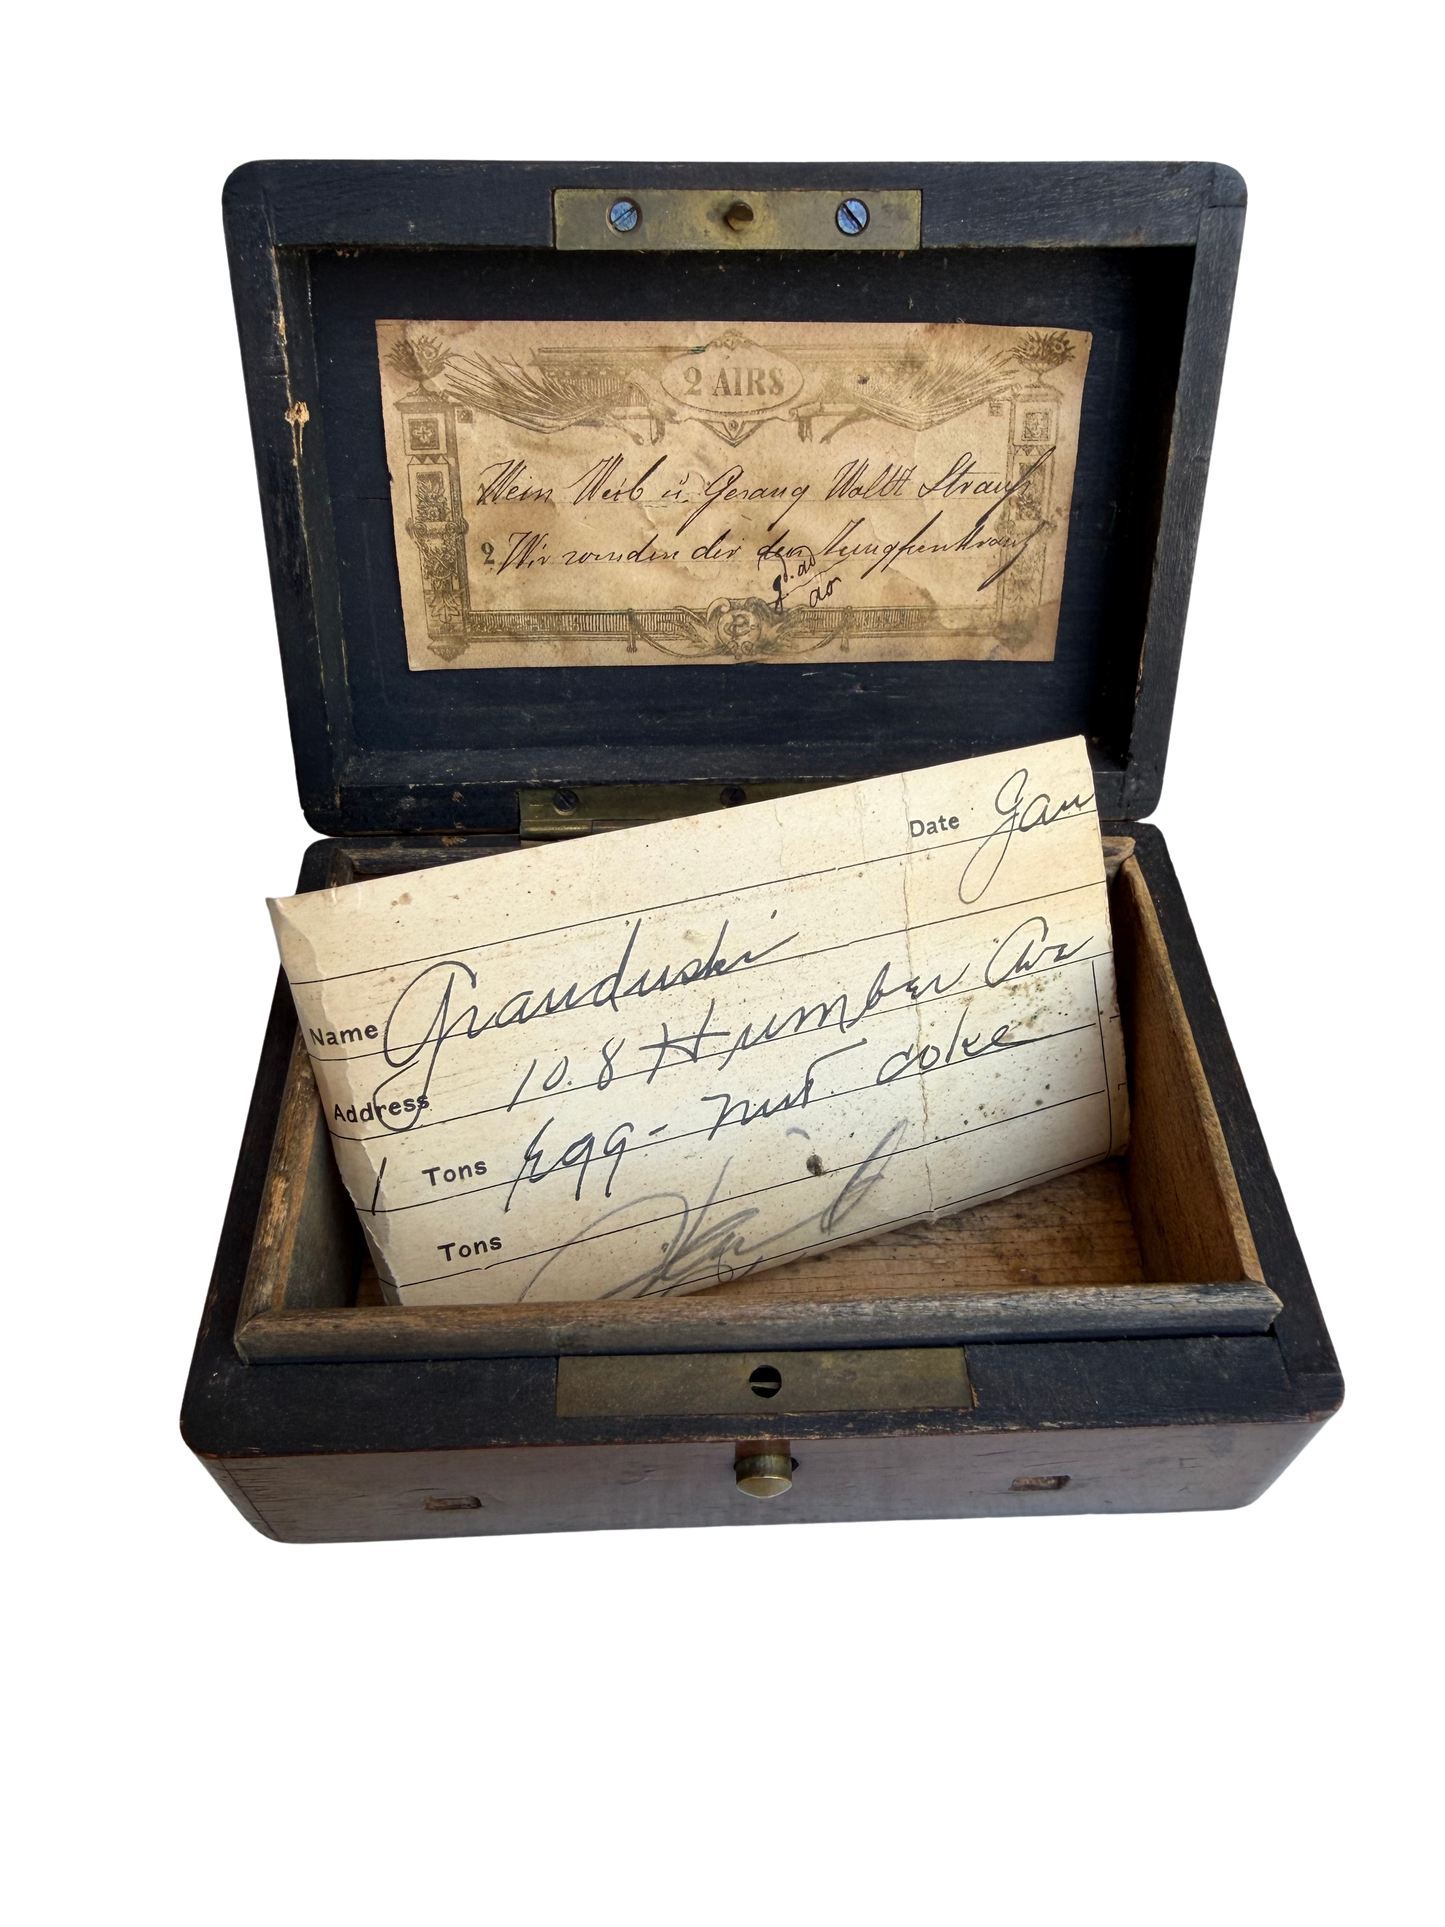 2 AIRS
Wein Weib ü. Gesang Waltt Strauß
2 Wir winden dir den Jungfernkranz
Date Jan
Name Granduski
Address 108 Humber Ave
1 Tons Egg - nut coke
Tons